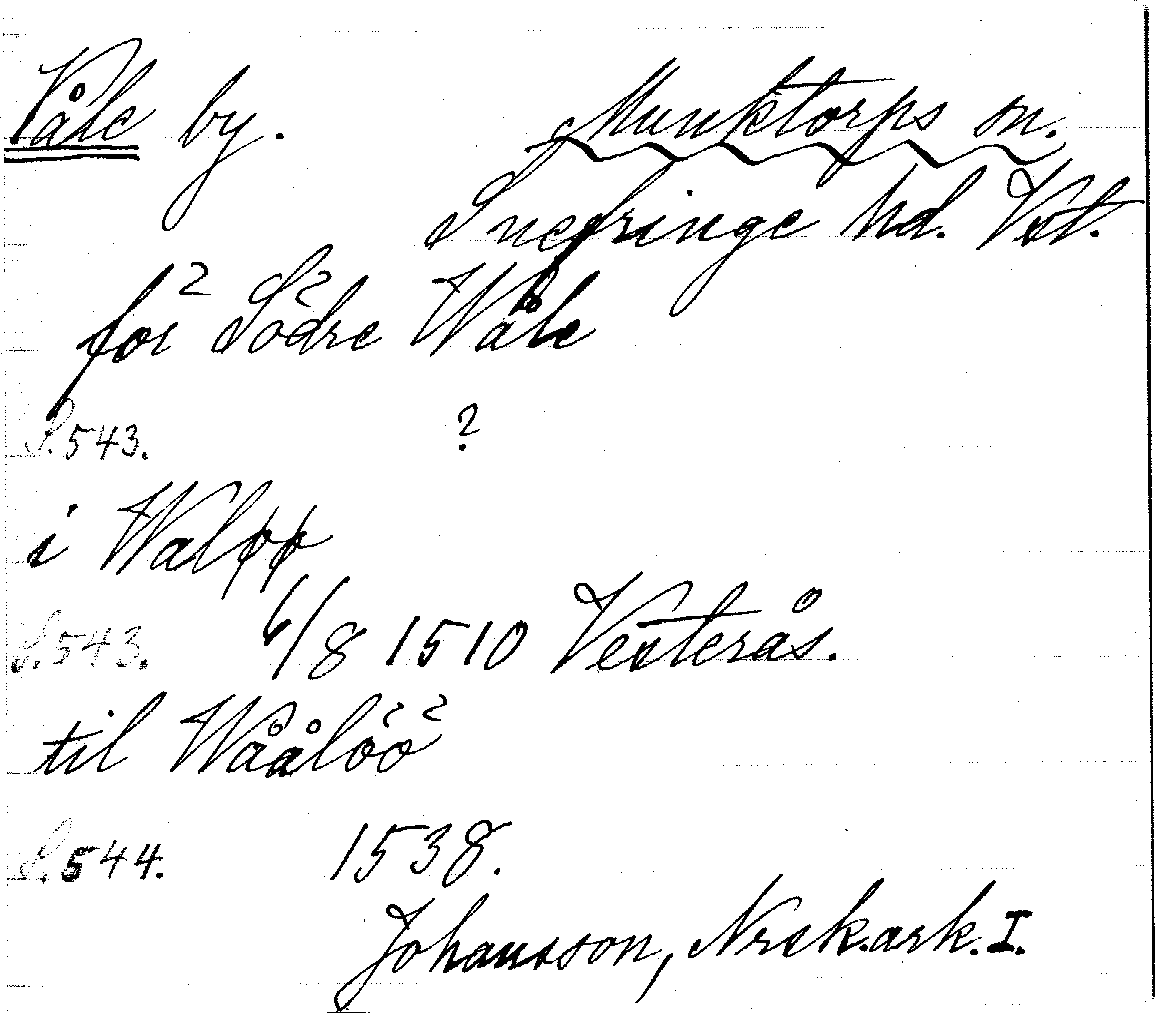 Våle by. Munktorps sn.
Snefringe hd. Vst.
för Södre Wåle
S. 543. ?
i Waløø
S. 543. 6/8 1510 Vesterås.
til Wåålöö
S. 544. 1538.
Johansson, Nrsk.ark. I.